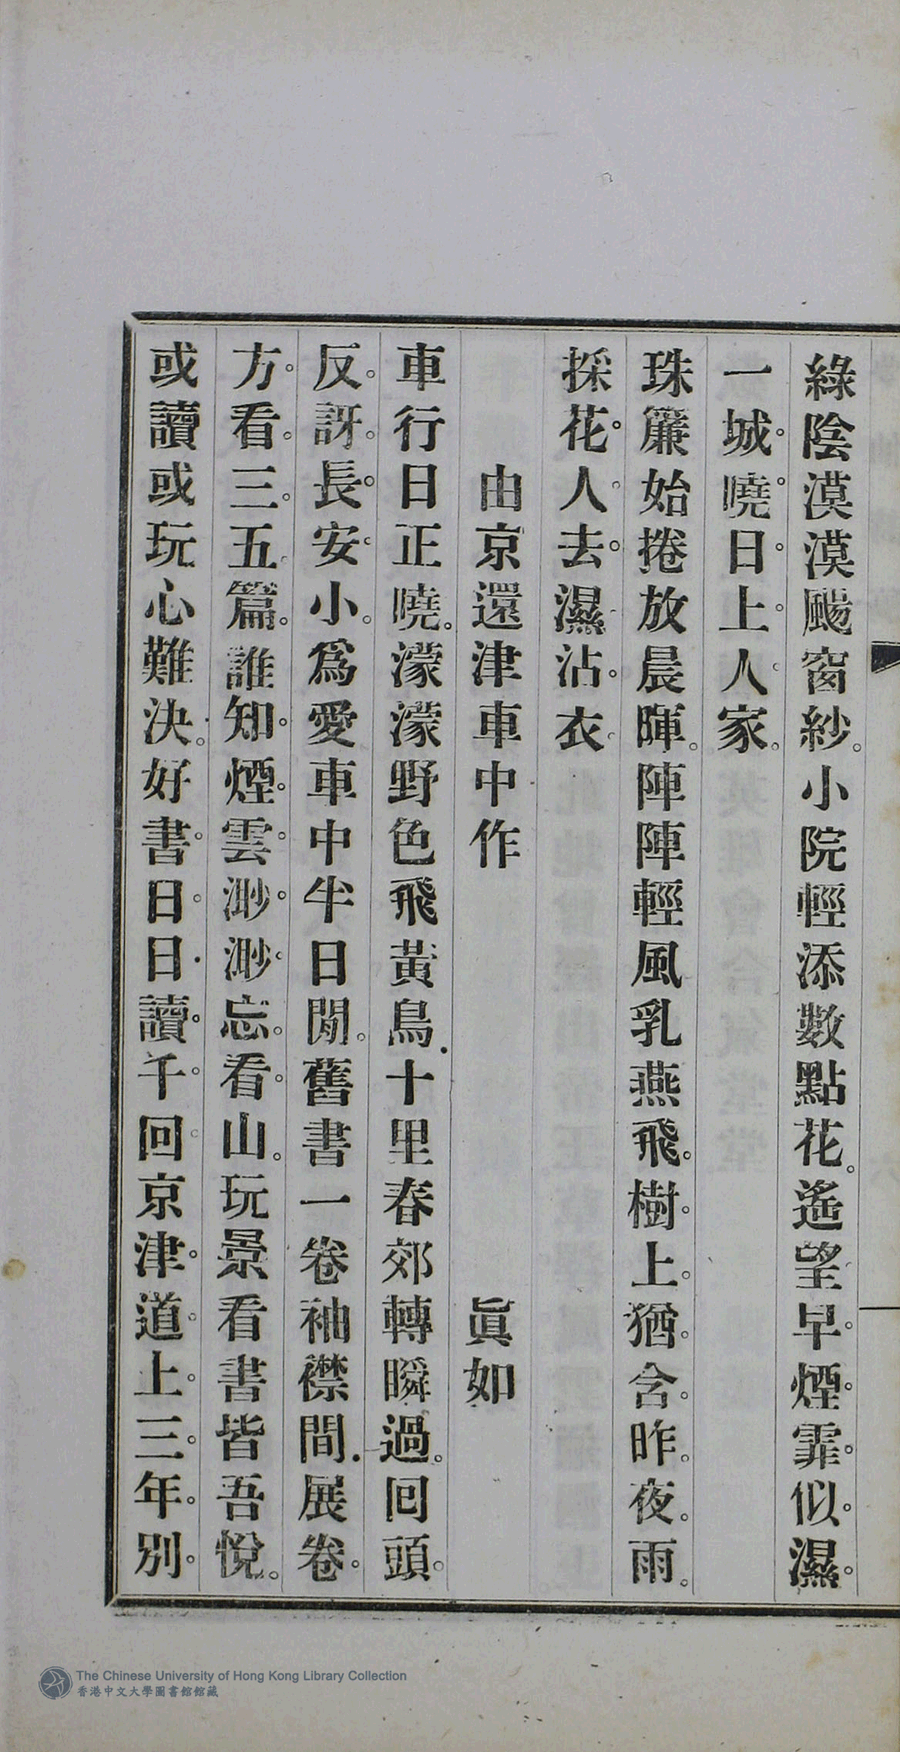 綠陰漠漠颺窗紗。小院輕添數點花。遙望早煙霏似濕。
一城曉日上人家。
珠簾始捲放晨暉。陣陣輕風乳燕飛。樹上猶含昨夜雨。
採花人去濕沾衣。
由京還津車中作　眞如
車行日正曉。濛濛野色飛黃鳥。十里春郊轉瞬過。回頭。
反訝長安小。爲愛車中半日閒。舊書一卷袖襟間。展卷。
方看三五篇。誰知煙雲渺渺忘看山。玩景看書皆吾悅。
或讀或玩心難決。好書日日讀千回。京津道上三年別。
The Chinese University of Hong Kong Library Collection
香港中文大學圖書館館藏